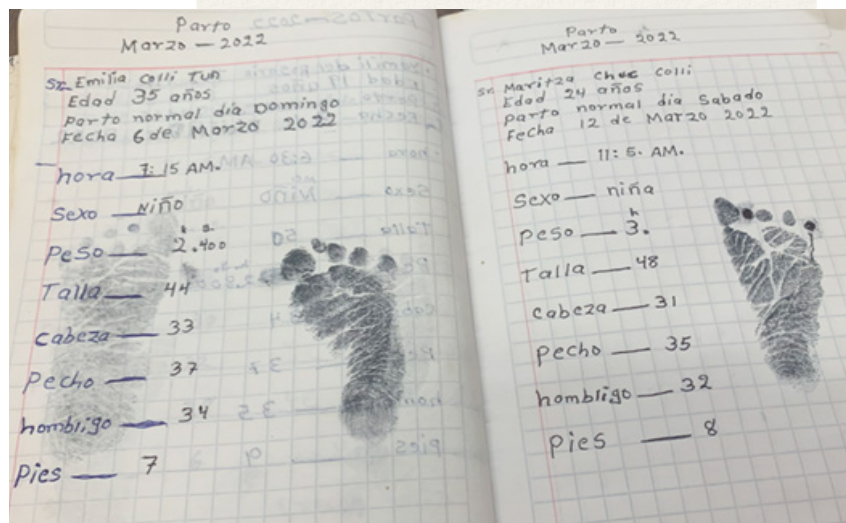 Parto
Marzo — 2022
Sr. Emilia Colli Tun
Edad 35 años
parto normal dia Domingo
Fecha 6 de Marzo 2022
hora — 7:15 AM.
Sexo — Niño
Peso — 2.400
Talla — 44
cabeza — 33
Pecho — 37
hombligo — 34
Pies — 7
Parto
Marzo — 2022
Sr. Maritza Choc Colli
Edad 24 años
parto normal dia Sabado
Fecha 12 de Marzo 2022
hora — 11:5. AM.
Sexo — niña
Peso — 3.
Talla — 48
cabeza — 31
Pecho — 35
hombligo — 32
Pies — 8